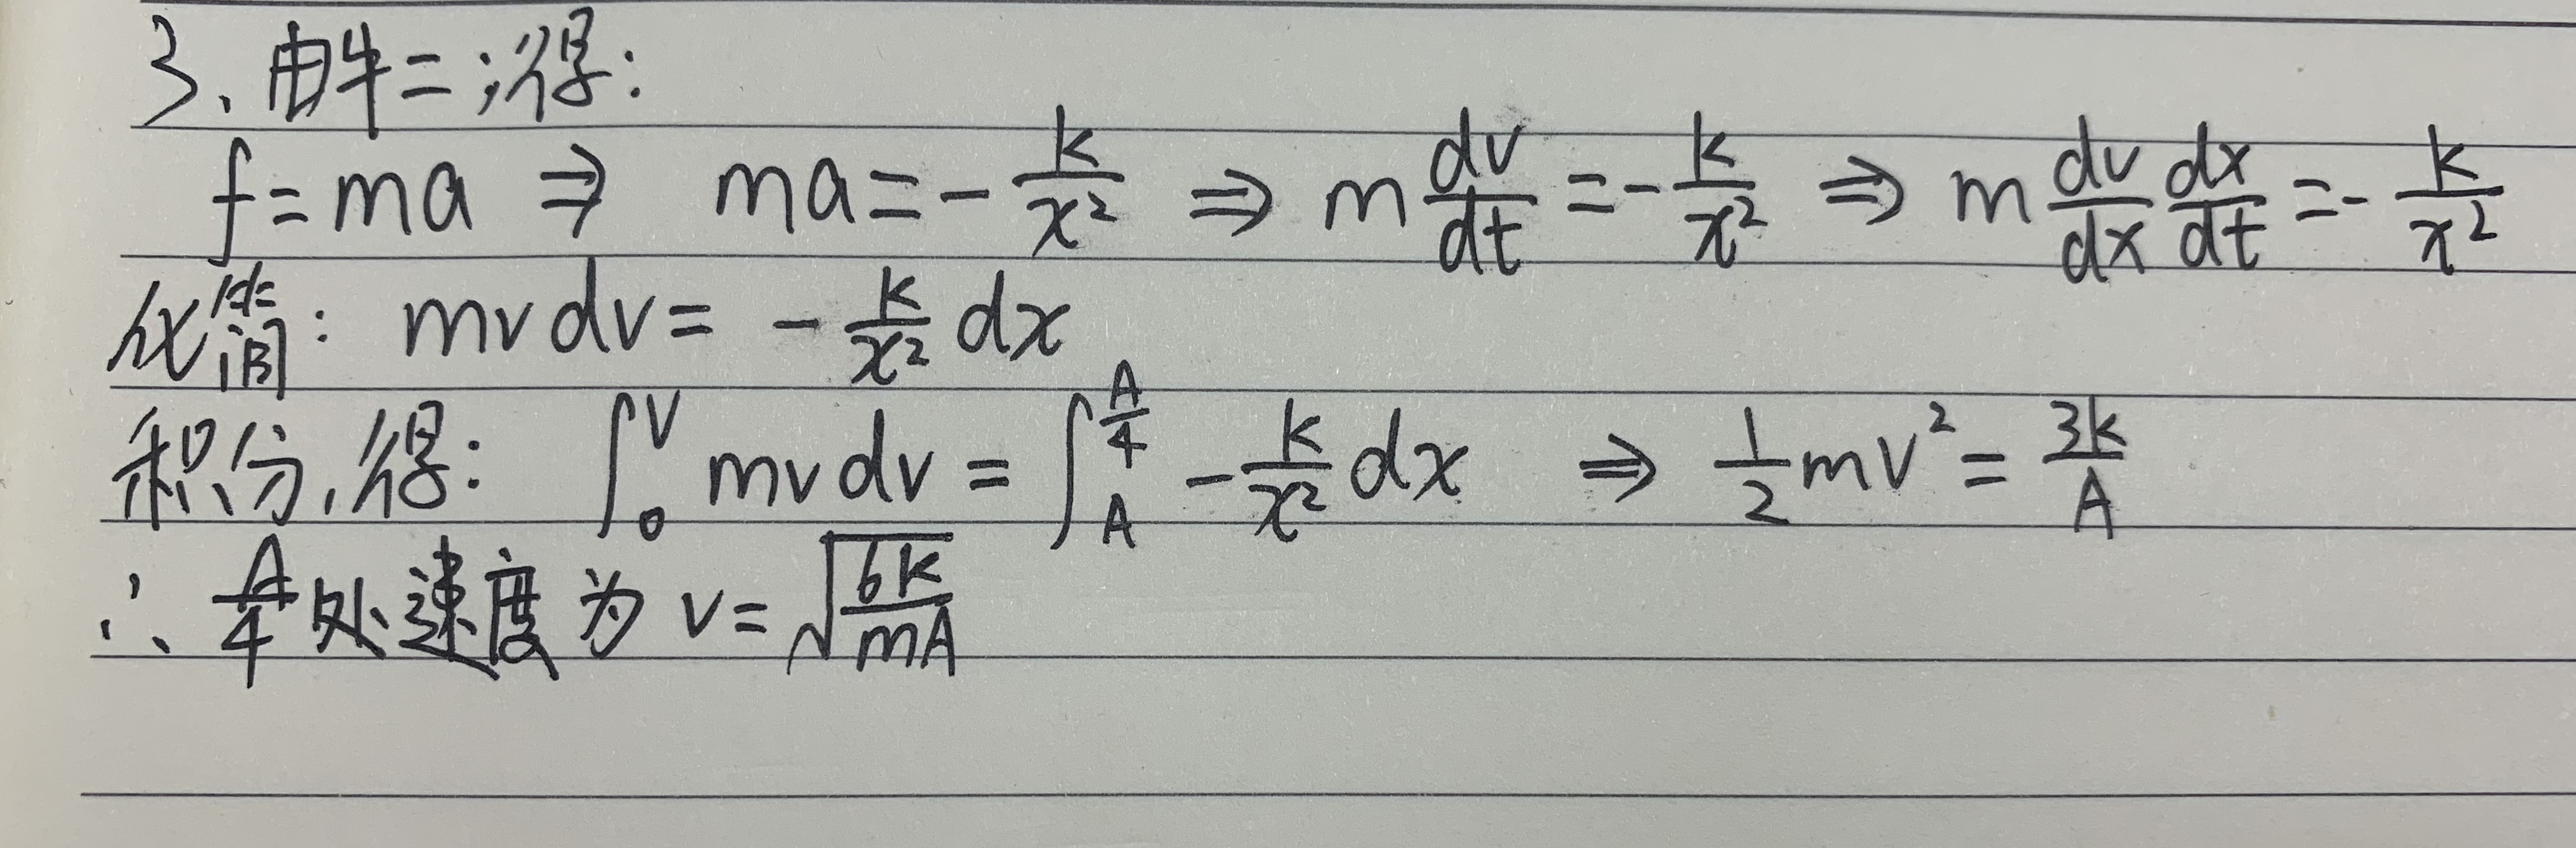 3、由牛二,得:
f=ma ⇒ ma=-k/x² ⇒ m dv/dt=-k/x² ⇒ m dv/dx dx/dt=-k/x²
化简: mv dv= -k/x² dx
积分,得: ∫₀ⱽ mv dv = ∫_A^{A/4} -k/x² dx ⇒ 1/2 mv²=3k/A
∴ A/4 处速度为 v=√(6k/mA)